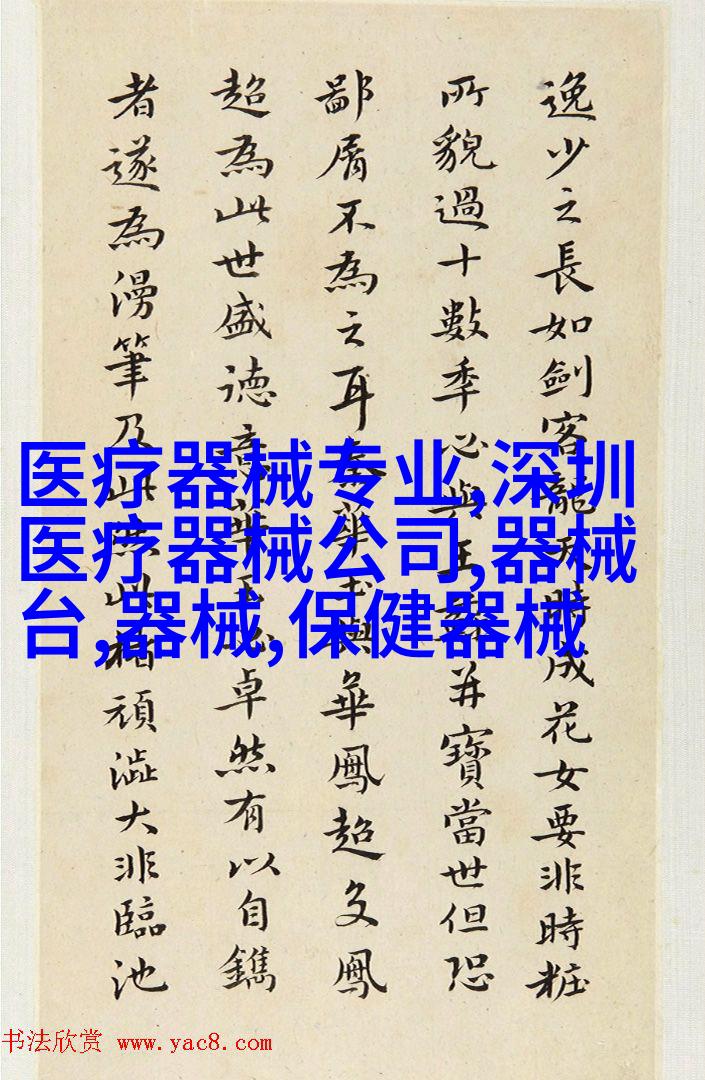 逸少之長如劍客龍天時成花女要非時粧
所貌過十數季必與王并寶當世但恐
鄙屑不為之耳華與華鳳超文鳳
超為此世盛德意華卓然有以自鐫
者遂為漫筆乃此無此頑澁大非臨池
医疗器械专业,深圳
医疗器械公司,器械
台,器械,保健器械
书法欣赏 www.yac8.com